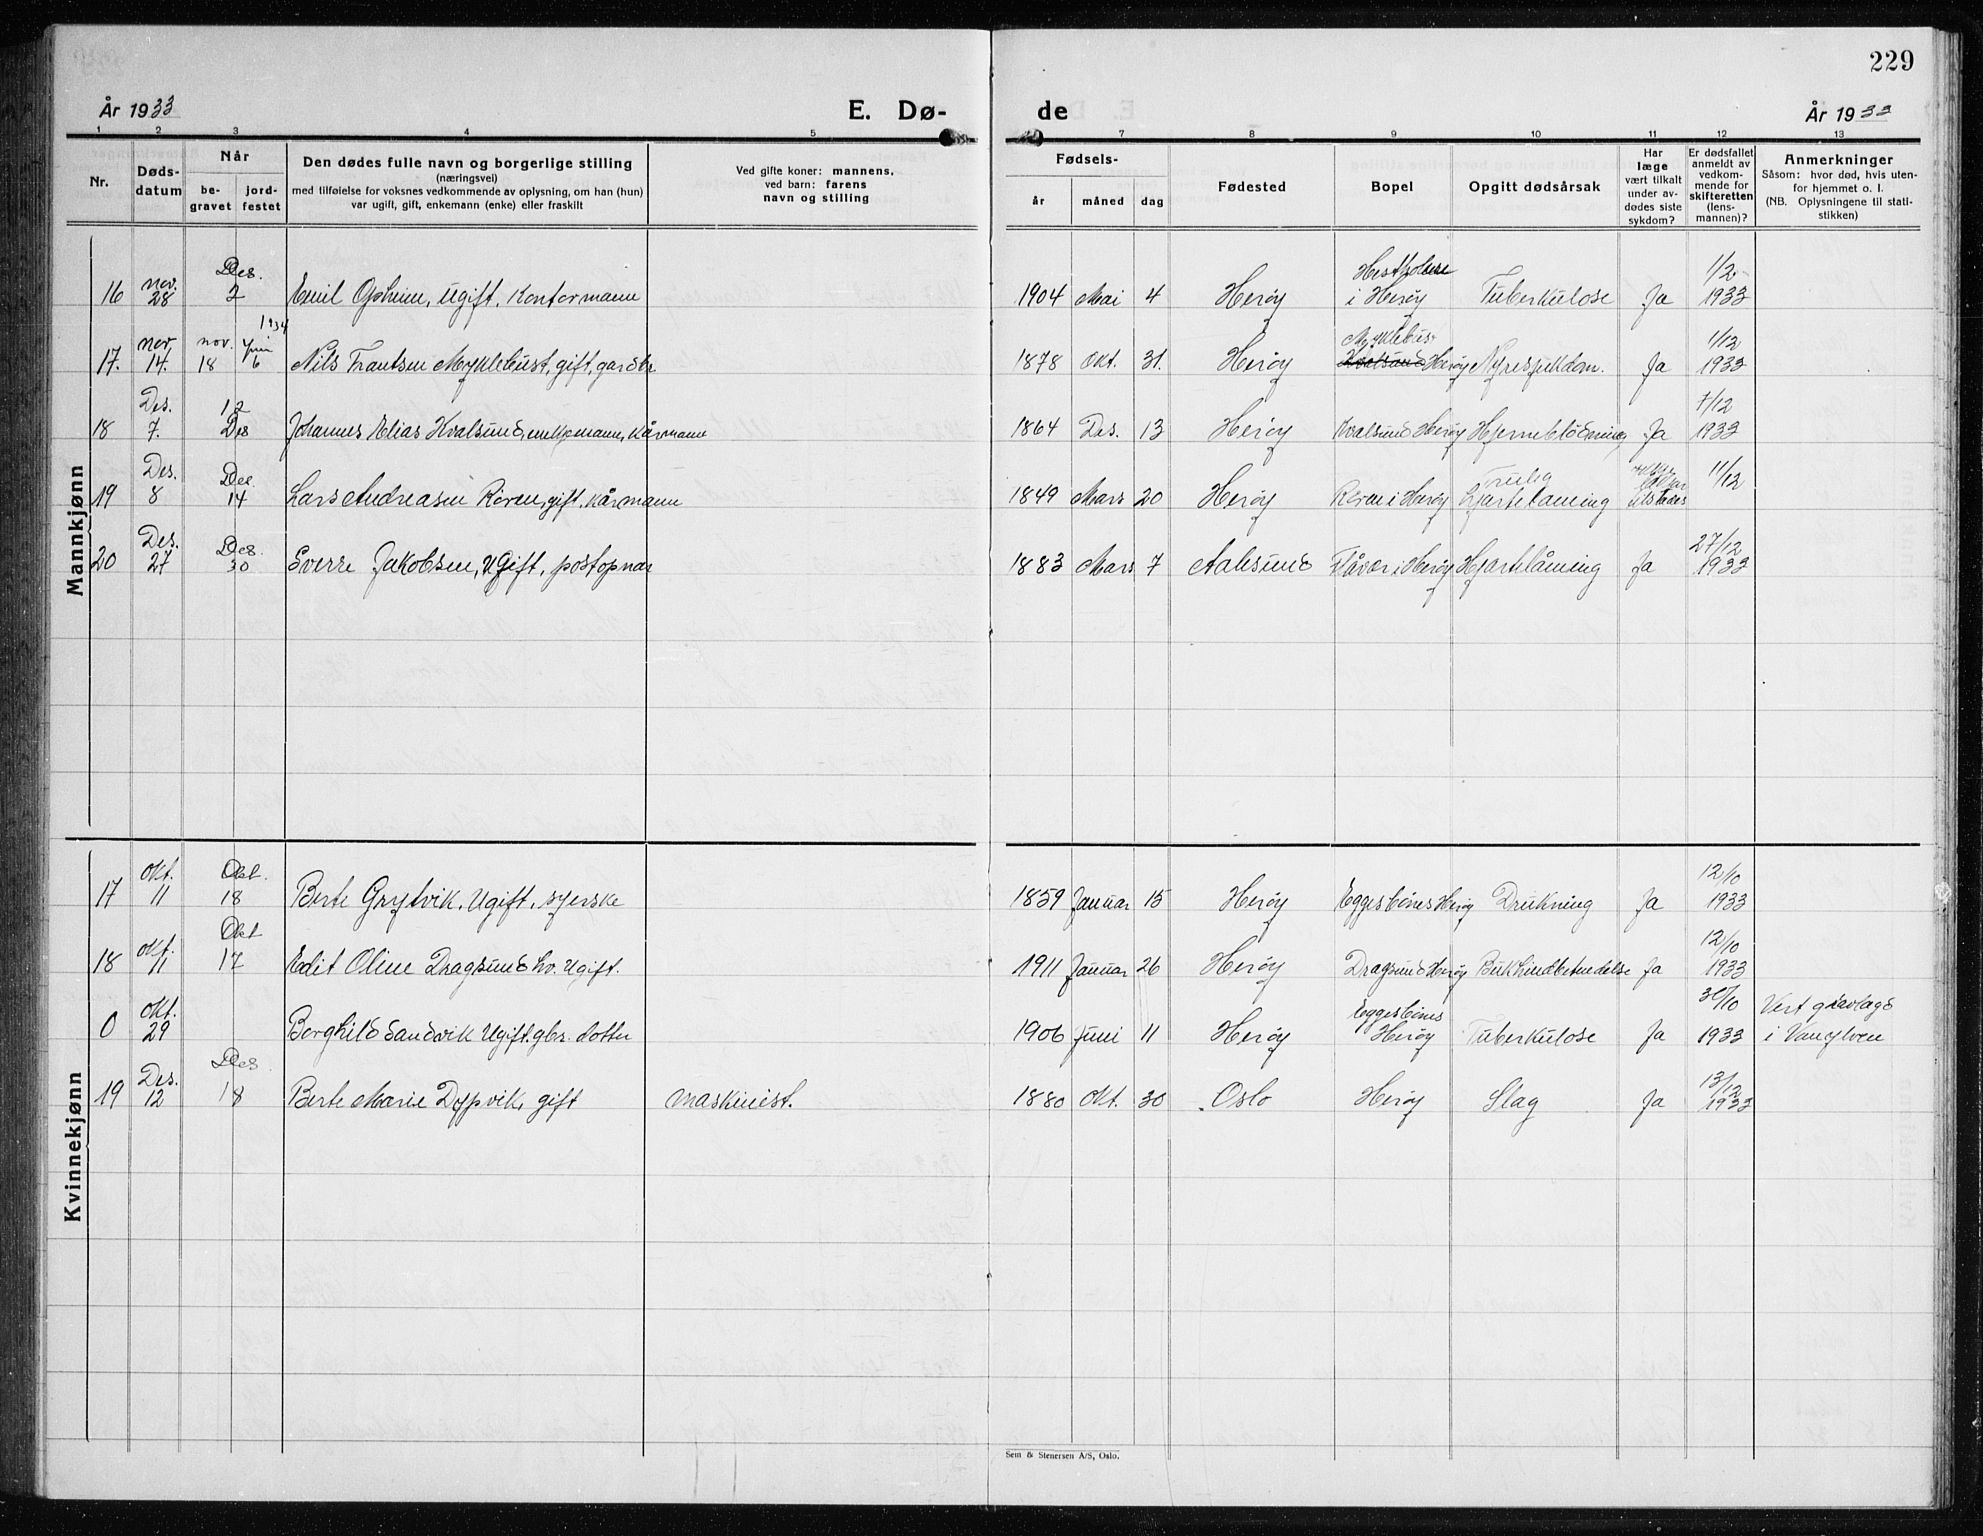 229
År 1933 E. Dø- de År 1933
1 2 3 4 5 7 8 9 10 11 12 13
Nr.
Døds-
datum
Når
be-
gravet
jord-
festet
Den dødes fulle navn og borgerlige stilling
(næringsvei)
med tilføielse for voksnes vedkommende av oplysning, om han (hun)
var ugift, gift, enkemann (enke) eller fraskilt
Ved gifte koner: mannens,
ved barn: farens
navn og stilling
Fødsels-
år måned dag
Fødested
Bopel
Opgitt dødsårsak
Har
læge
vært tilkalt
under av-
dødes siste
sykdom?
Er dødsfallet
anmeldt av
vedkom-
mende for
skifteretten
(lens-
mannen)?
Anmerkninger
Såsom: hvor død, hvis uten-
for hjemmet o. l.
(NB. Oplysningene til stati-
stikken)
Mannkjønn
nov. Des. Hestholmen 1/2
16 28 2 Emil Opheim, ugift, Kontormann 1904 Mai 4 Herøy i Herøy Tuberkulose Ja 1933
1934
nov. nov. Juni Myklebus- 1/12
17. 14. 18 6 Nils Frantsen Myklebust, gift, gardbr 1878 Okt. 31. Herøy Kvalsund Herøy Nyresykdom. Ja 1933
Des. 12 7/12
18 7. Des Johannes Elias Kvalsund, enkemann, Kårmann 1864 Des. 13 Herøy Kvalsund Herøy Hjerneblødning Ja 1933
Des. Des. Trulig ikke 11/12
19 8 14 Lars Andreasen Røren, gift, Kårmann 1849 Mars 20 Herøy Røren i Herøy Hjartelaming tilstades
Des. Des. 27/12
20 27 30 Sverre Jakobsen, Ugift, postopnar 1883 Mars 7 Aalesund Flåvær i Herøy Hjartelåming Ja 1933
Kvinnekjønn
Okt. Okt. 12/10
17 11 18 Berte Grytvik, Ugift, syerske 1859 Januar 15 Herøy Eggesbønes Herøy Drukning Ja 1933
Okt. Okt 12/10
18 11 17 Edit Oline Dragsund hv. Ugift. 1911 Januar 26 Herøy Dragsund Herøy Bukhindbetendelse Ja 1933
Okt. Eggesbønes 30/10 Vert gravlagd
0 29 Borghild Sandvik Ugift. gbr. dotter 1906 Juni 11 Herøy Herøy Tuberkulose Ja 1933 i Vanylven
Des. Des. 13/12
19 12 18 Berte Marie Dypvik, gift maskinist. 1880 Okt. 30 Oslo Herøy Slag Ja 1933
Sem & Stenersen A/S, Oslo.